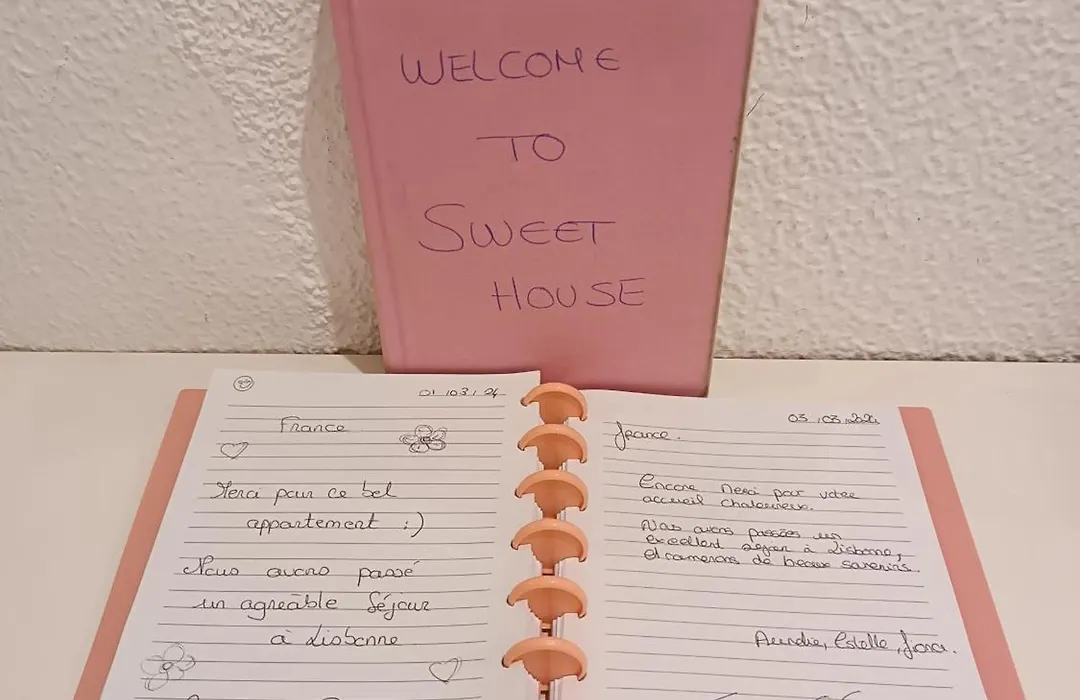 WELCOME
TO
SWEET
HOUSE
01/03/24
France
Merci pour ce bel
appartement :)
Nous avons passé
un agréable séjour
à Lisbonne
03/03/2024
France.
Encore Merci pour votre
accueil chaleureux.
Nous avons passées un
excellent séjour à Lisbonne,
et de beaux souvenirs.
Aurélie, Estelle,